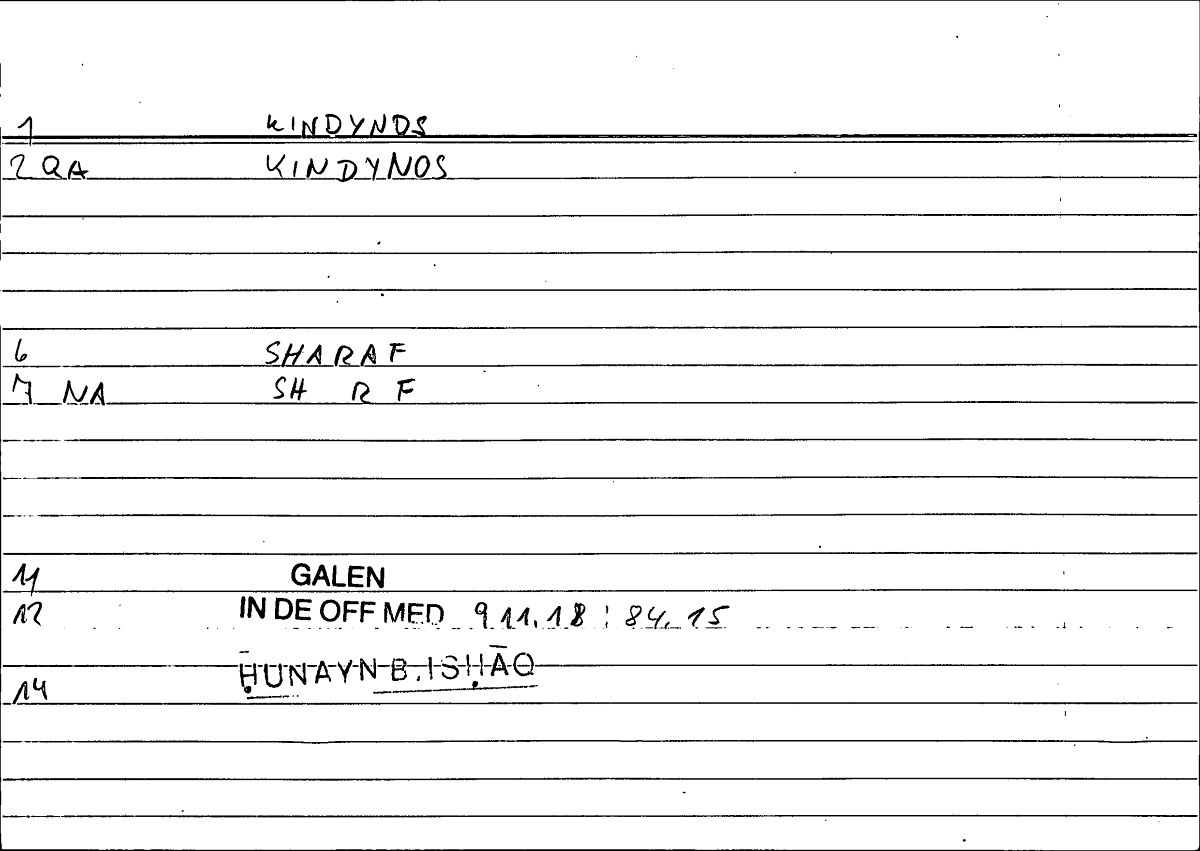 1 KINDYNOS
2 QA KINDYNOS
6 SHARAF
7 NA SH R F
11 GALEN
12 IN DE OFF MED 911.18 : 84.15
14 ḤUNAYN B. ISḤĀQ